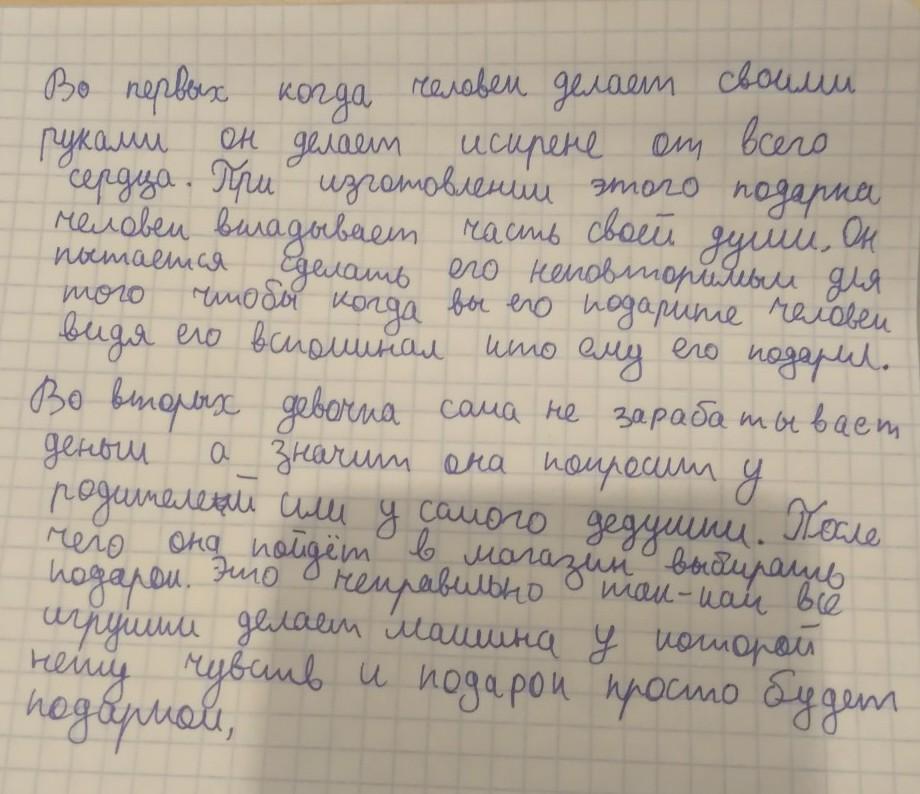 Во первых когда человек делает своими
руками он делает искрене от всего
сердца. При изготовлении этого подарка
человек вкладывает часть своей души. Он
пытается сделать его неповторимым для
того чтобы когда вы его подарите человек
видя его вспоминал кто ему его подарил.
Во вторых девочка сама не зарабатывает
деньги а значит она попросит у
родителей или у самого дедушки. После
чего она пойдёт в магазин выбирать
подарок. Это неправильно так-как все
игрушки делает машина у которой
нету чувств и подарок просто будет
подарком,